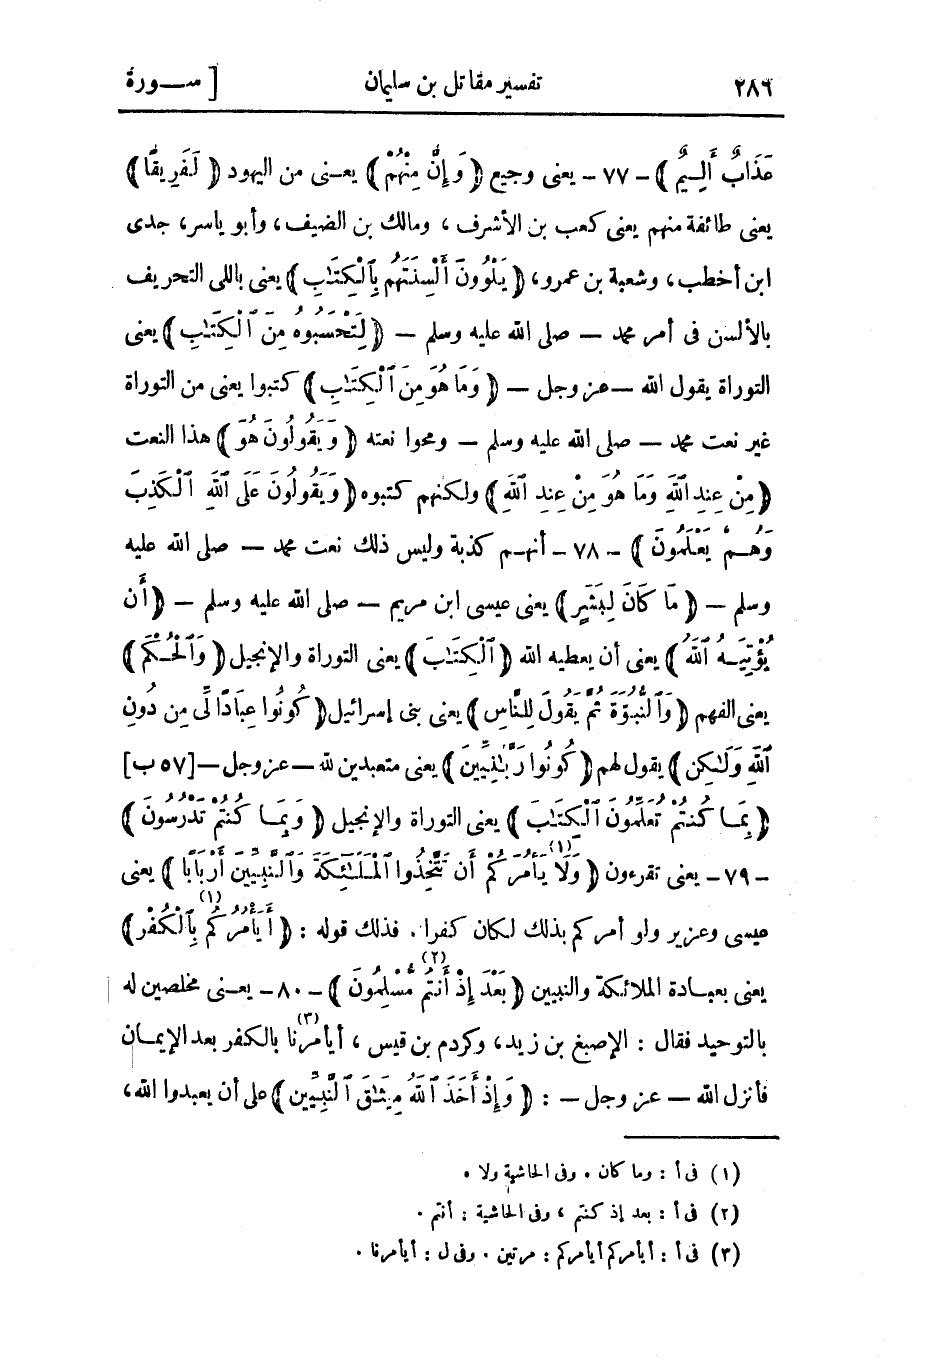 ٢٨٦ تفسير مقاتل بن سليمان [ ســورة
عَذَابٌ أَلِيمٌ ﴾ - ٧٧ - يعنى وجيع ﴿ وَإِنَّ مِنْهُمْ ﴾ يعـنى من اليهود ﴿ لَفَرِيقًا ﴾
يعنى طائفة منهم يعنى كعب بن الأشرف ، ومالك بن الضيف ، وأبو ياسر، جدى
ابن أخطب ، وشعبة بن عمرو، ﴿ يَلْوُونَ أَلْسِنَتَهُم بِٱلْكِتَٰبِ ﴾ يعنى باللى التحريف
بالألسن فى أمر محمد — صلى الله عليه وسلم — ﴿ لِتَحْسَبُوهُ مِنَ ٱلْكِتَٰبِ ﴾ يعنى
التوراة يقول الله — عز وجل — ﴿ وَمَا هُوَ مِنَ ٱلْكِتَٰبِ ﴾ كتبوا يعنى من التوراة
غير نعت محمد — صلى الله عليه وسلم — ومحوا نعته ﴿ وَيَقُولُونَ هُوَ ﴾ هذا النعت
﴿ مِنْ عِندِ ٱللَّهِ وَمَا هُوَ مِنْ عِندِ ٱللَّهِ ﴾ ولكنهم كتبوه ﴿ وَيَقُولُونَ عَلَى ٱللَّهِ ٱلْكَذِبَ
وَهُـمْ يَعْلَمُونَ ﴾ - ٧٨ - أنهـم كذبة وليس ذلك نعت محمد — صلى الله عليه
وسلم — ﴿ مَا كَانَ لِبَشَرٍ ﴾ يعنى عيسى ابن مريم — صلى الله عليه وسلم — ﴿ أَن
يُؤْتِيَـهُ ٱللَّهُ ﴾ يعنى أن يعطيه الله ﴿ ٱلْكِتَٰبَ ﴾ يعنى التوراة والإنجيل ﴿ وَٱلْحُـكْمَ ﴾
يعنى الفهم ﴿ وَٱلنُّبُوَّةَ ثُمَّ يَقُولَ لِلنَّاسِ ﴾ يعنى بنى إسرائيل ﴿ كُونُوا عِبَادًا لِّى مِن دُونِ
ٱللَّهِ وَلَٰكِن ﴾ يقول لهم ﴿ كُونُوا رَبَّٰنِيِّينَ ﴾ يعنى متعبدين لله — عز وجل — [٥٧ ب]
﴿ بِمَـا كُنتُمْ تُعَلِّمُونَ ٱلْكِتَٰبَ ﴾ يعنى التوراة والإنجيل ﴿ وَبِمَـا كُنتُمْ تَدْرُسُونَ ﴾
- ٧٩ - يعنى تقرءون ﴿ وَلَا(١) يَأْمُرَكُمْ أَن تَتَّخِذُوا ٱلْمَلَٰٓئِكَةَ وَٱلنَّبِيِّينَ أَرْبَابًا ﴾ يعنى
عيسى وعزير ولو أمركم بذلك لكان كفرا . فذلك قوله : ﴿ أَيَأْمُرُكُم(١) بِٱلْكُفْرِ ﴾
يعنى بعبـادة الملائكة والنبيين ﴿ بَعْدَ إِذْ أَنتُم(٢) مُّسْلِمُونَ ﴾ - ٨٠ - يعـنى مخلصين له
بالتوحيد فقال : الإصبغ بن زيد، وكردم بن قيس ، أيأمرنا(٣) بالكفر بعد الإيمـان
فأنزل الله — عز وجل — : ﴿ وَإِذْ أَخَذَ ٱللَّهُ مِيثَٰقَ ٱلنَّبِيِّينَ ﴾ على أن يعبدوا الله،
(١) فى أ : وما كان . وفى الحاشية ولا .
(٢) فى أ : بعد إذ كنتم ، وفى الحاشية : أنتم .
(٣) فى أ : أيأمركم أيأمركم : مرتين . وفى ل : أيأمرنا .